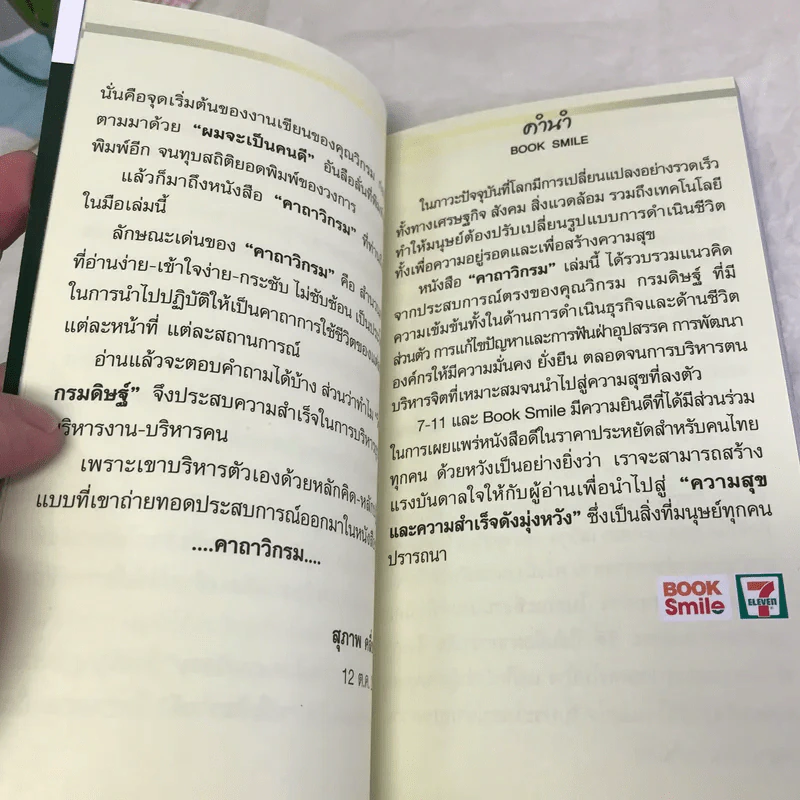 นั่นคือจุดเริ่มต้นของงานเขียนของคุณวิกรม
ตามมาด้วย “ผมจะเป็นคนดี” อันลือลั่นที่
พิมพ์อีก จนทุบสถิติยอดพิมพ์ของวงการ
แล้วก็มาถึงหนังสือ “คาถาวิกรม” ที่ท่าน
ในมือเล่มนี้
ลักษณะเด่นของ “คาถาวิกรม” คือ
ที่อ่านง่าย-เข้าใจง่าย-กระชับ ไม่ซับซ้อน
ในการนำไปปฏิบัติให้เป็นคาถาการใช้ชีวิตของ
แต่ละหน้าที่ แต่ละสถานการณ์
อ่านแล้วจะตอบคำถามได้บ้าง ส่วนว่าทำไม
กรมดิษฐ์” จึงประสบความสำเร็จในการบริหาร
บริหารงาน-บริหารคน
เพราะเขาบริหารตัวเองด้วยหลักคิด-
แบบที่เขาถ่ายทอดประสบการณ์ออกมาในหนังสือ
....คาถาวิกรม....
สุภาพ
12 ต.ค.
คำนำ
BOOK SMILE
ในภาวะปัจจุบันที่โลกมีการเปลี่ยนแปลงอย่างรวดเร็ว
ทั้งทางเศรษฐกิจ สังคม สิ่งแวดล้อม รวมถึงเทคโนโลยี
ทำให้มนุษย์ต้องปรับเปลี่ยนรูปแบบการดำเนินชีวิต
ทั้งเพื่อความอยู่รอดและเพื่อสร้างความสุข
หนังสือ “คาถาวิกรม” เล่มนี้ ได้รวบรวมแนวคิด
จากประสบการณ์ตรงของคุณวิกรม กรมดิษฐ์ ที่มี
ความเข้มข้นทั้งในด้านการดำเนินธุรกิจและด้านชีวิต
ส่วนตัว การแก้ไขปัญหาและการฟันฝ่าอุปสรรค การพัฒนา
องค์กรให้มีความมั่นคง ยั่งยืน ตลอดจนการบริหารตน
บริหารจิตที่เหมาะสมจนนำไปสู่ความสุขที่ลงตัว
7-11 และ Book Smile มีความยินดีที่ได้มีส่วนร่วม
ในการเผยแพร่หนังสือดีในราคาประหยัดสำหรับคนไทย
ทุกคน ด้วยหวังเป็นอย่างยิ่งว่า เราจะสามารถสร้าง
แรงบันดาลใจให้กับผู้อ่านเพื่อนำไปสู่ “ความสุข
และความสำเร็จดังมุ่งหวัง” ซึ่งเป็นสิ่งที่มนุษย์ทุกคน
ปรารถนา
BOOK
Smile
7
ELEVEN